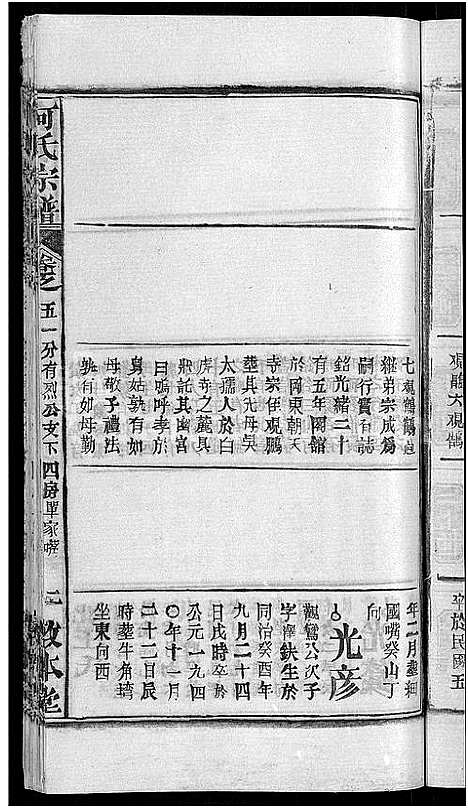 觀鸛大觀鶴
卒於民國五
七觀鶴鶴
繼弟宗成為
嗣行實有誌
銘光緒二十
有五年園館
於岡東胡天
寺宗侄觀鵬
塟其先母吳
太孺人於白
虎寺之麓具
狀託其幽宮
曰嗚呼孝於
舅姑孰有如
母敬子禮法
孰有如母勤
年二月塟
國嘴癸山丁
向
光彦
觀鸞公次子
字澤欽生於
同治癸酉年
九月二十四
日戌時卒於
公元一九四
〇年十一月
二十二日辰
時塟牛角塆
坐東向西
何氏宗譜
卷之五一分有烈公支下四房單家
敦本堂